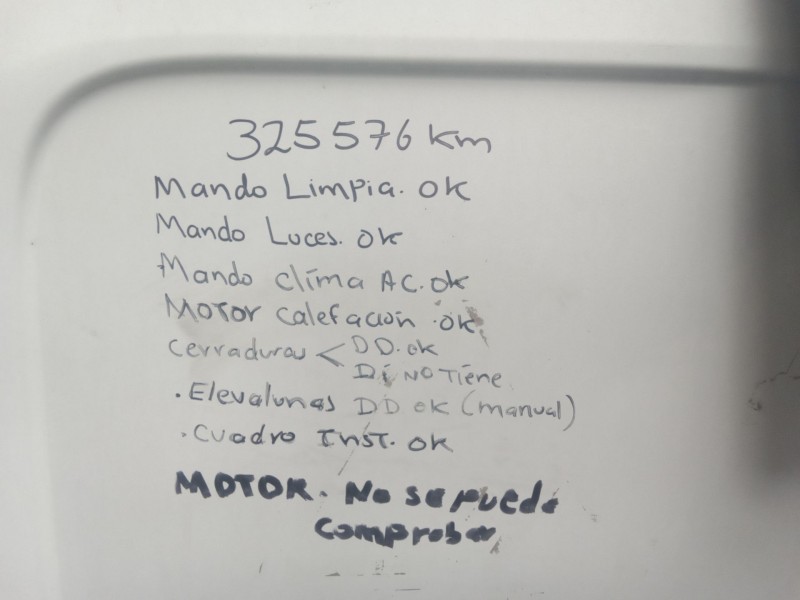 325576 km
Mando Limpia. OK
Mando Luces. OK
Mando clíma AC. OK
MOTOR calefacion .OK
cerraduras < DD. OK
DI NO Tiene
. Elevalunas DD OK (manual)
. cuadro Inst. OK
MOTOR. No se puede
comprobar